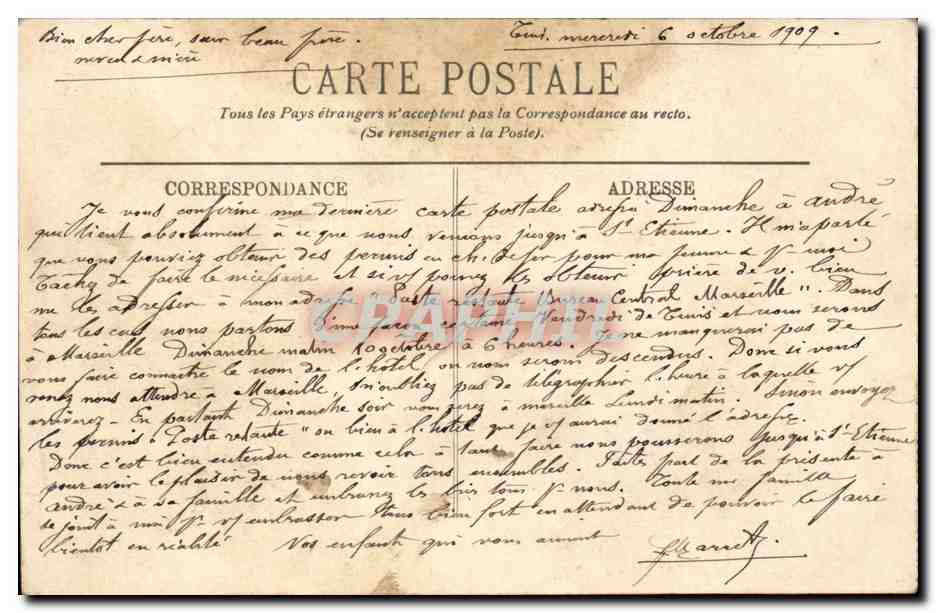 Bien cher père, sœur beau père.
neveu & nièce
Tunis. mercredi 6 octobre 1909.
CARTE POSTALE
Tous les Pays étrangers n'acceptent pas la Correspondance au recto.
(Se renseigner à la Poste).
CORRESPONDANCE
ADRESSE
Je vous confirme ma dernière carte postale Dimanche à andré
qui tient absolument à ce que nous venions jusqu'à St Etienne. Il m'a parlé
que vous pouviez obtenir des permis en ch. de fer pour ma femme & moi
Tachez de faire le nécessaire et si v/ pouvez les obtenir prière de v. bien
me les adresser à mon adresse "Poste restante Bureau Central Marseille". Dans
tous les cas nous partons d'une façon certaine Vendredi de Tunis et nous serons
à Marseille Dimanche matin 10 octobre à 6 heures. Je ne manquerai pas de
vous faire connaître le nom de l'hôtel, ou nous serons descendus. Donc si vous
venez nous attendre à Marseille, n'oubliez pas de télégraphier l'heure à laquelle v/
arriverez. En partant Dimanche soir vous serez à marseille Lundi matin. Sinon envoyez
les permis à Poste restante" ou bien à l'hôtel que je v/ aurai donné l'adresse.
Donc c'est bien entendu comme cela à tant faire nous pousserons jusqu'à St-Etienne
pour avoir le plaisir de vous revoir tous ensembles. Faites part de la présente à
andré & à sa famille et embrassez les bien tous pr nous. Toute ma famille
se joint à moi pr v/ embrasser tous bien fort en attendant de pouvoir le faire
bientot en réalité Vos enfants qui vous aiment
CPAPHIL